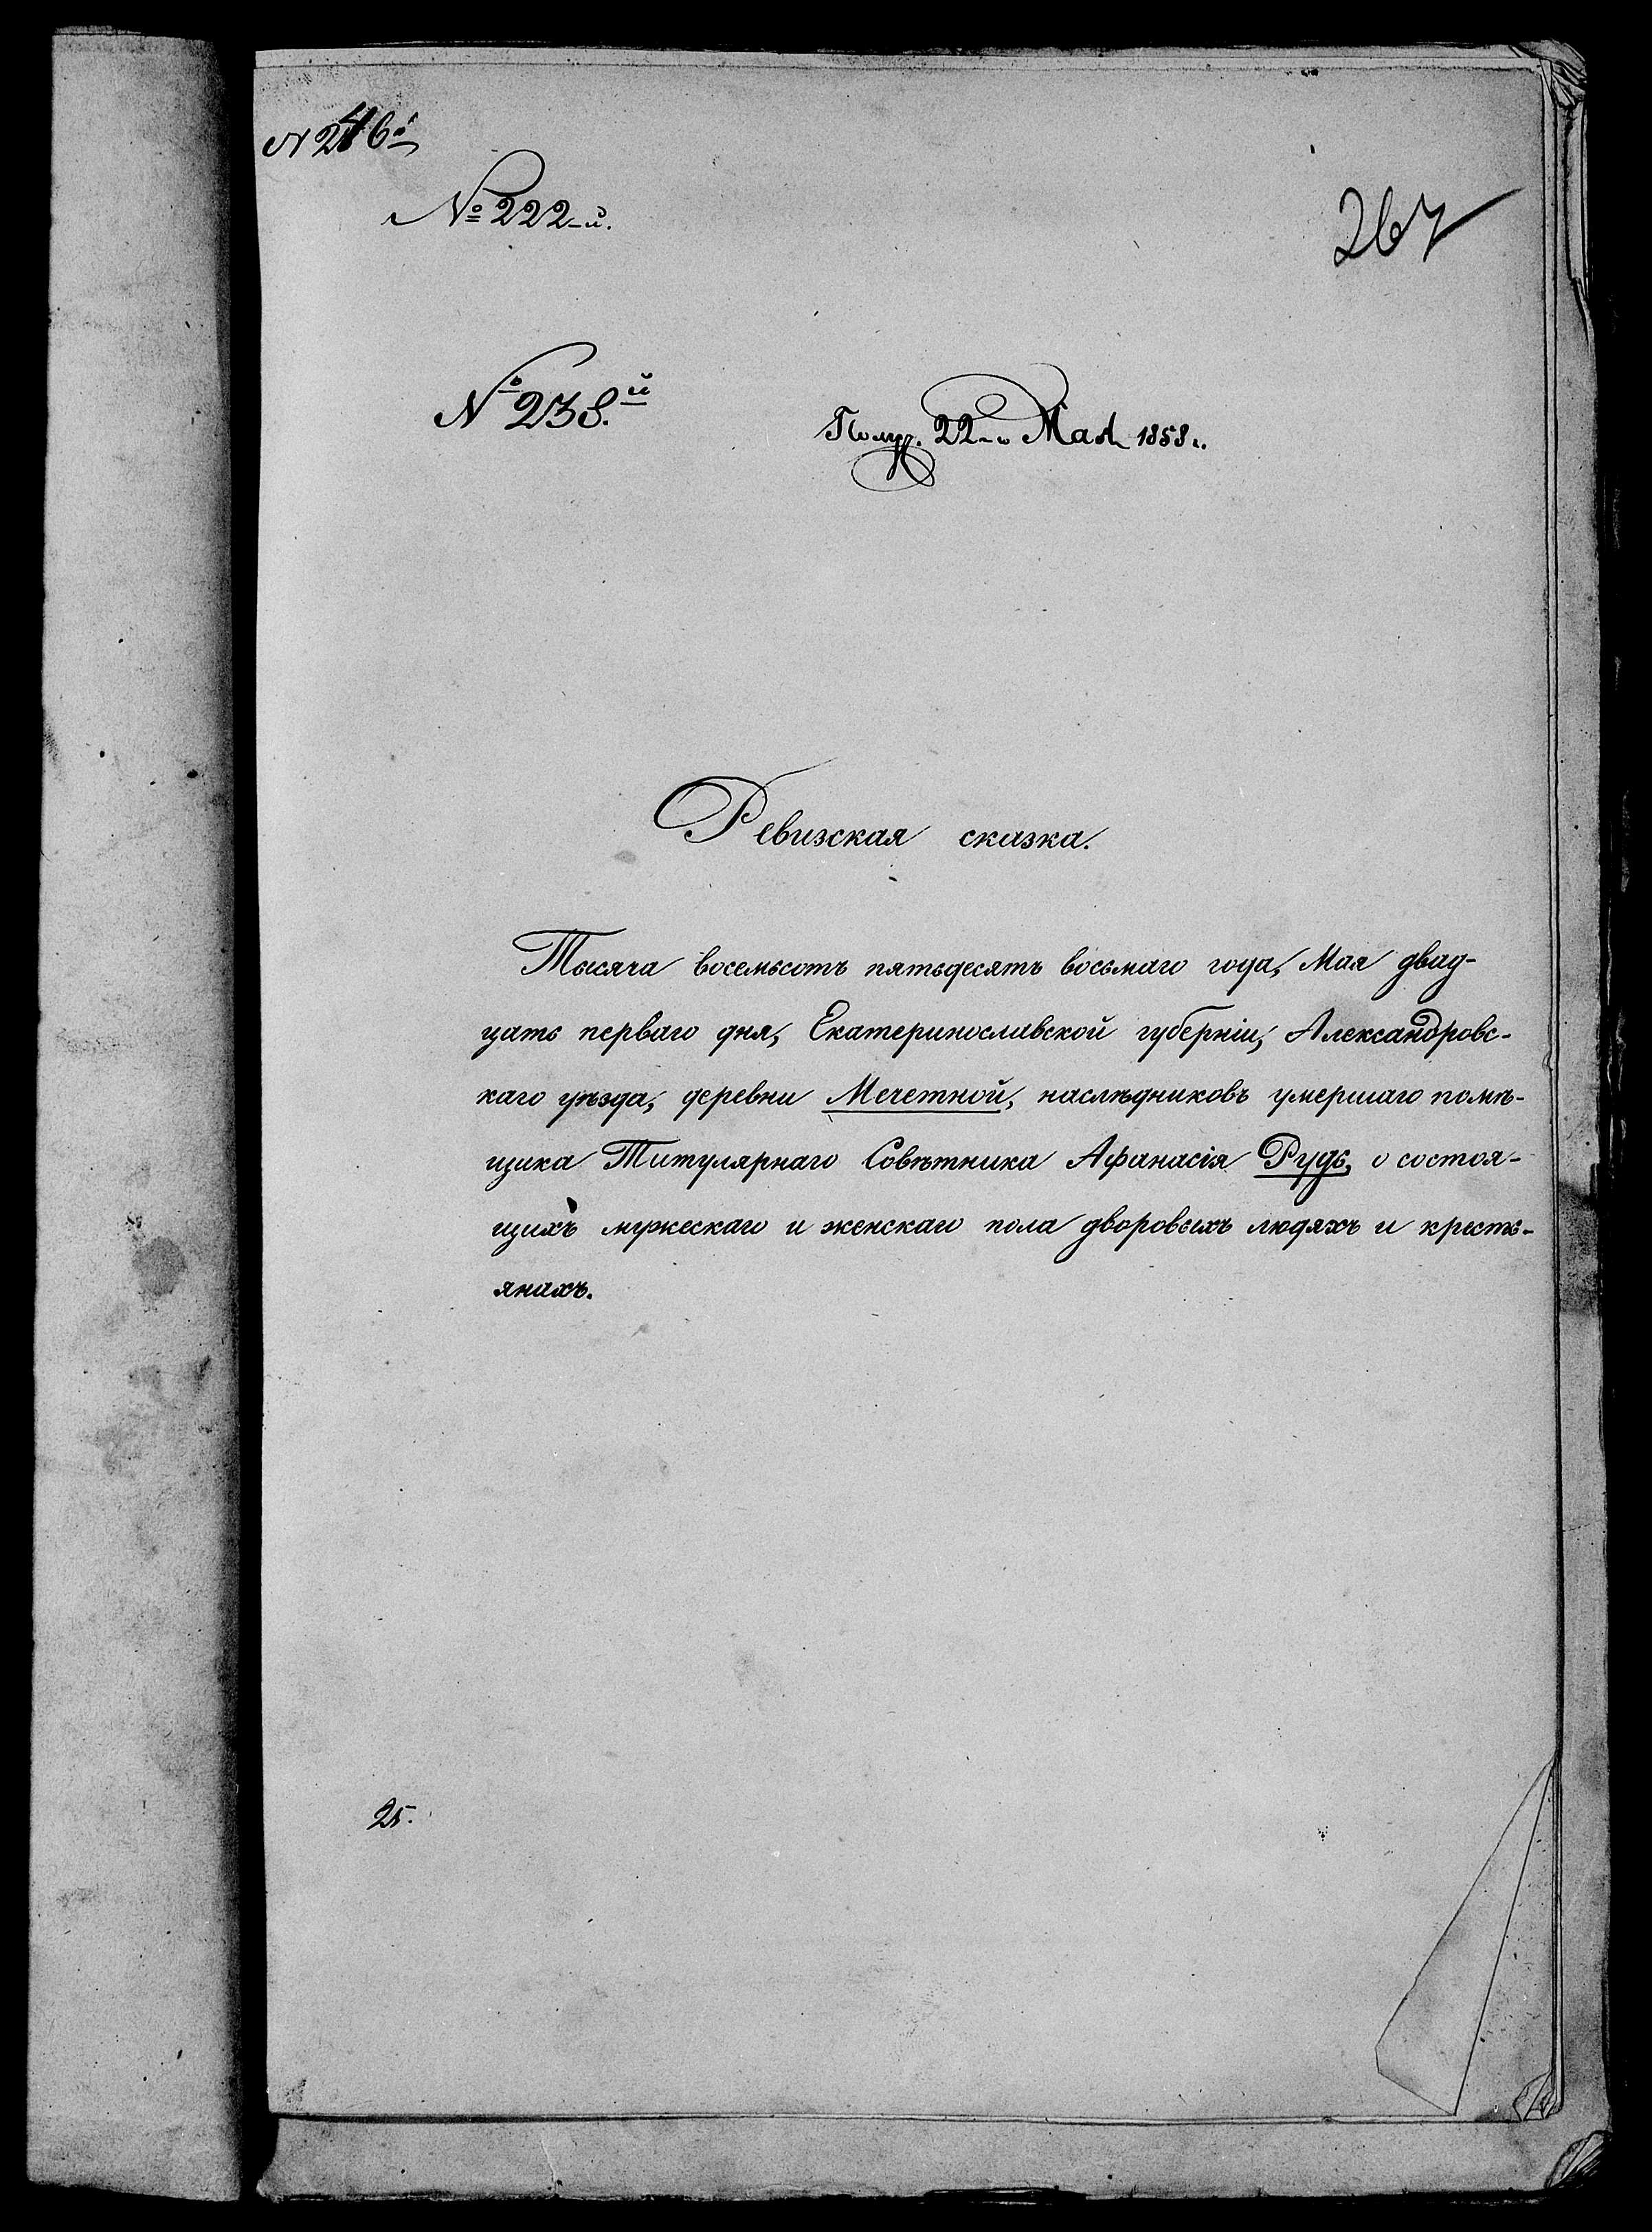 № 246й
№ 222-й.
267
№ 238.й
Получ. 22-го Мая 1858 г.
Ревизская сказка.
Тысяча восемьсотъ пятьдесятъ восьмаго года, Мая двад-
цать перваго дня, Екатеринославской губерніи, Александровс-
каго уѣзда, деревни Мечетной, наслѣдниковъ умершаго помѣ-
щика Титулярнаго Совѣтника Афанасія Рудь, о состоя-
щихъ мужескаго и женскаго пола дворовыхъ людяхъ и кресть-
янахъ.
25.